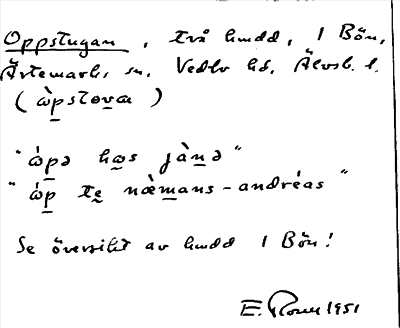 Oppstugan, två hmdd, 1 Bön,
Ärtemarks sn. Vedbo hd. Älvsb. l.
(ὼpstωva)
"ώpə hωs jànə"
"ώp te næ̀mans-andréas"
Se översikt av hmdd 1 Bön!
E. 1951